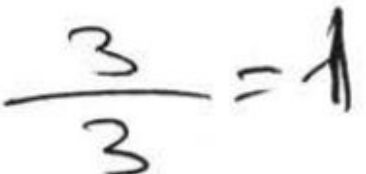 3/3 = 1